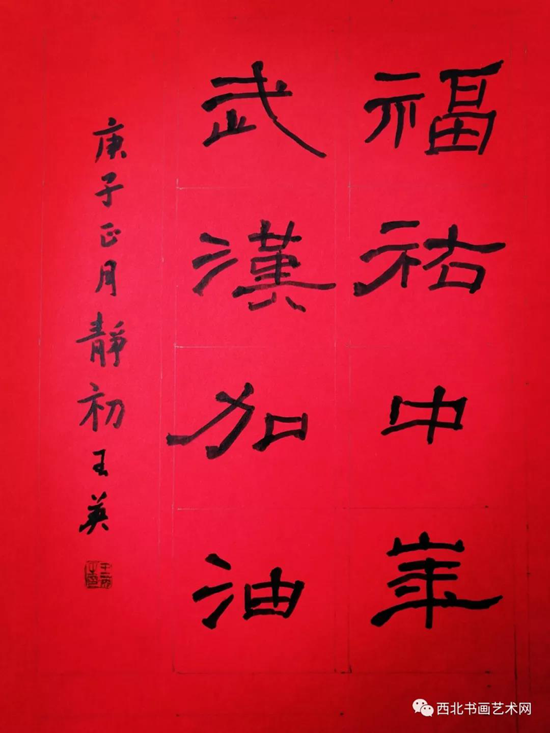 福祐中華
武漢加油
庚子正月靜初王英
西北书画艺术网